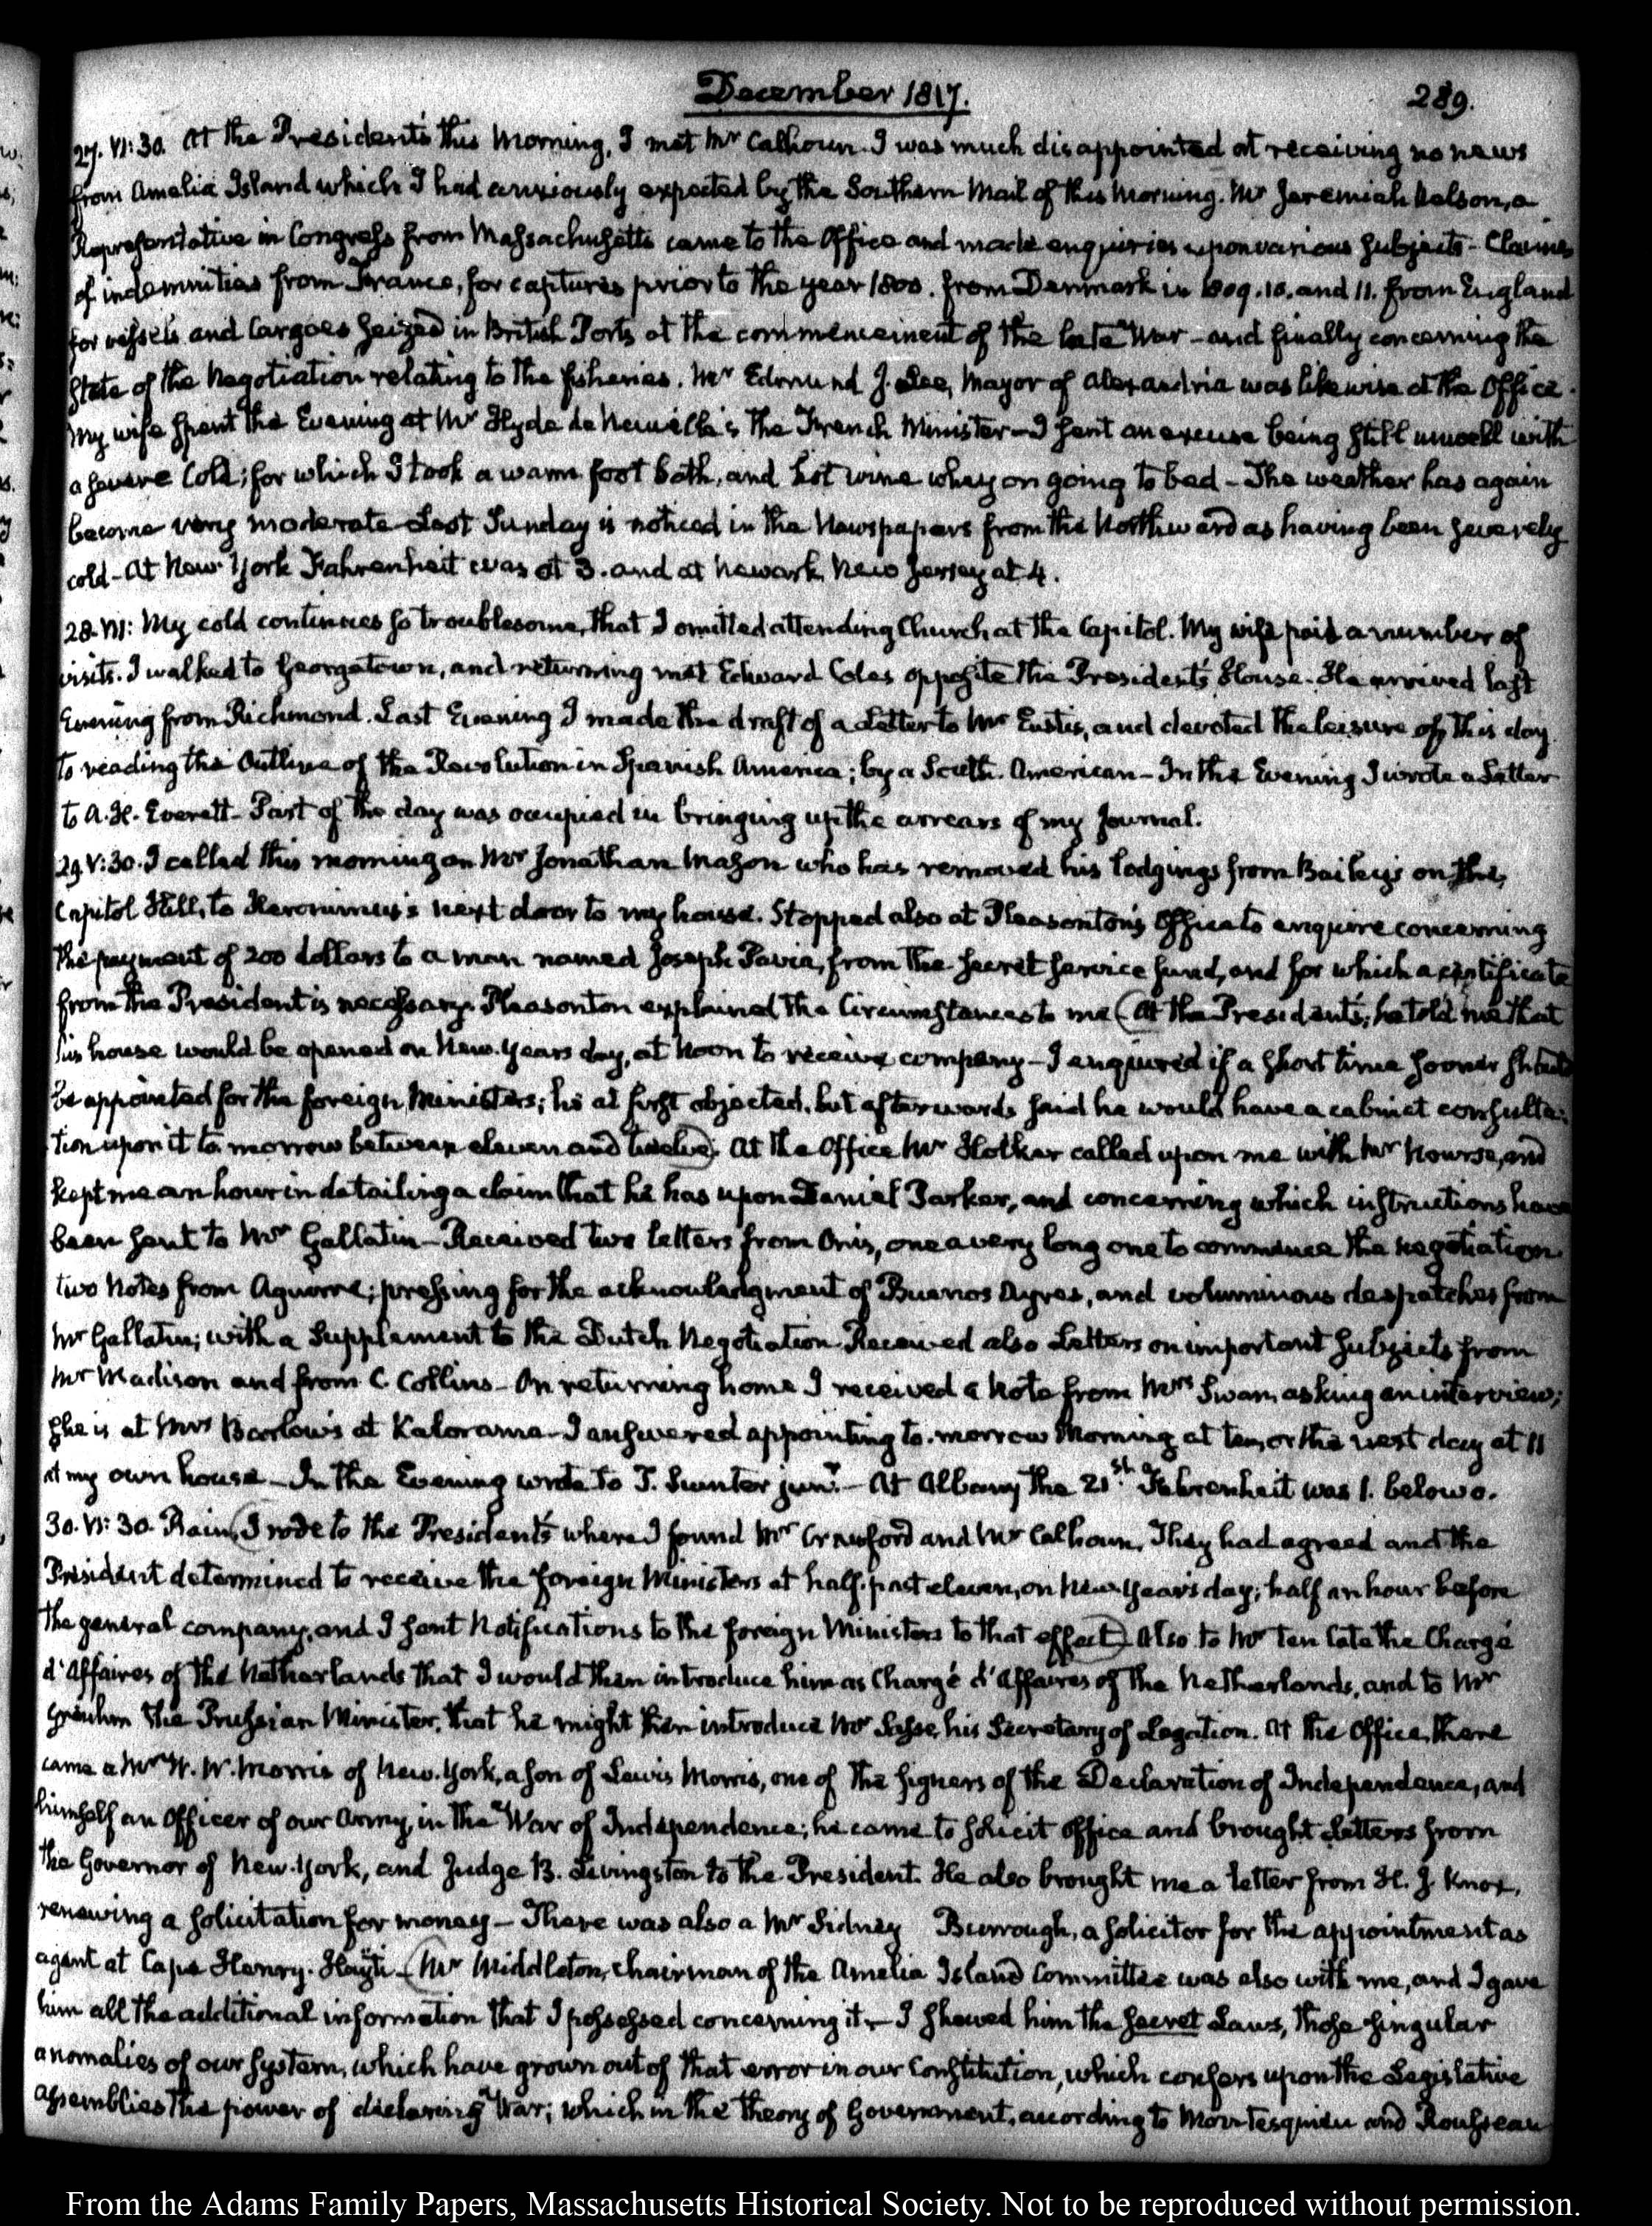 December 1817.
289.
27. VI:30. At the President's this Morning, I met Mr Calhoun. I was much disappointed at receiving no news
from Amelia Island which I had anxiously expected by the Southern Mail of this Morning. Mr Jeremiah Nelson, a
Representative in Congress from Massachusetts came to the Office and made enquiries upon various subjects - Claims
of indemnities from France, for captures prior to the year 1800. from Denmark in 1809. 10. and 11. from England
for vessels and Cargoes seized in British Ports at the commencement of the late War - and finally concerning the
State of the Negotiation relating to the fisheries. Mr Edmund J. Lee, Mayor of Alexandria was likewise at the Office.
My wife spent the Evening at Mr Hyde de Neuville's the French Minister - I sent an excuse being still unwell with
a severe Cold; for which I took a warm foot bath, and hot wine whey on going to bed - The weather has again
become very moderate - Last Sunday is noticed in the Newspapers from the Northward as having been severely
cold - At New-York Fahrenheit was at 3. and at Newark New Jersey at 4.
28. VI: My cold continues so troublesome, that I omitted attending Church at the Capitol. My wife paid a number of
visits. I walked to Georgetown, and returning met Edward Coles opposite the President's House. He arrived last
Evening from Richmond. Last Evening I made the draft of a Letter to Mr Eustis, and devoted the leisure of this day
to reading the Outline of the Revolution in Spanish America; by a South. American - In the Evening I wrote a Letter
to A. H. Everett - Part of the day was occupied in bringing up the arrears of my Journal.
29. V:30. I called this morning on Mr Jonathan Mason who has removed his lodgings from Bailey's on the
Capitol Hill, to Heronimus's next door to my house. Stopped also at Pleasonton's Office to enquire concerning
the payment of 200 dollars to a man named Joseph Pavia, from the secret service fund, and for which a certificate
from the President is necessary. Pleasonton explained the Circumstances to me (At the President's; he told me that
his house would be opened on New-Years day, at Noon to receive company - I enquired if a short time sooner should
be appointed for the foreign Ministers; he at first objected, but afterwards said he would have a cabinet consulta-
tion upon it to-morrow between eleven and twelve). At the Office Mr Hotker called upon me with Mr Nourse, and
kept me an hour in detailing a claim that he has upon Daniel Parker, and concerning which instructions have
been sent to Mr Gallatin - Received two letters from Onis, one a very long one to commence the negotiation.
two Notes from Aguirre; pressing for the acknowledgment of Buenos Ayres, and voluminous despatches from
Mr Gallatin; with a Supplement to the Dutch Negotiation. Received also Letters on important subjects from
Mr Madison and from C. Collins - On returning home I received a Note from Mrs Swan, asking an interview;
she is at Mrs Barlow's at Kalorama - I answered appointing to-morrow Morning at ten, or the next day at 11
at my own house - In the Evening wrote to T. Sumter junr. - At Albany the 21st Fahrenheit was 1. below 0.
30. VI:30. Rain (I rode to the President's where I found Mr Crawford and Mr Calhoun. They had agreed and the
President determined to receive the foreign Ministers at half-past eleven, on New-Year's day; half an hour before
the general company, and I sent Notifications to the foreign Ministers to that effect) Also to Mr Ten Cate the Chargé
d'Affaires of the Netherlands that I would then introduce him as Chargé d'Affaires of the Netherlands, and to Mr
Greuhm the Prussian Minister, that he might then introduce Mr Sasse, his Secretary of Legation. At the Office, there
came a Mr W. W. Morris of New-York, a son of Lewis Morris, one of the signers of the Declaration of Independence, and
himself an Officer of our Army, in the War of Independence; he came to solicit office and brought Letters from
the Governor of New-York, and Judge B. Livingston to the President. He also brought me a letter from H. J. Knox,
renewing a solicitation for money - There was also a Mr Sidney Burrough, a solicitor for the appointment as
agent at Cape Henry. Hayti - (Mr Middleton, Chairman of the Amelia Island Committee was also with me, and I gave
him all the additional information that I possessed concerning it - I shewed him the secret Laws, those singular
anomalies of our System, which have grown out of that error in our Constitution, which confers upon the Legislative
assemblies the power of declaring War; which in the theory of Government, according to Montesquieu and Rousseau
From the Adams Family Papers, Massachusetts Historical Society. Not to be reproduced without permission.